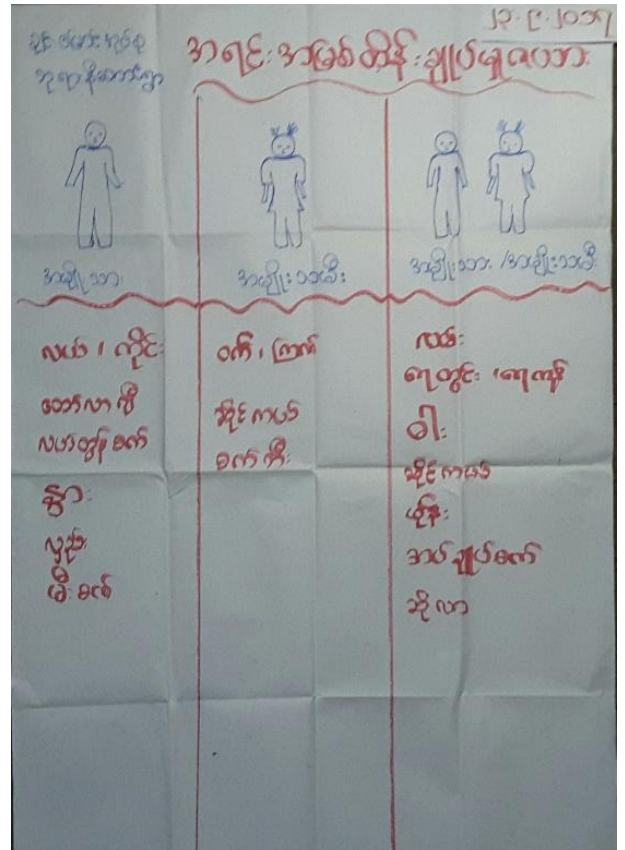 ၂၃.၉.၂၀၁၇
အရင်းအမြစ်ထိန်းချုပ်မှုဇယား
အမျိုးသား
အမျိုးသမီး
အမျိုးသား/အမျိုးသမီး
လယ်၊ ကိုင်း
ထော်လာဂျီ
လယ်ထွန်စက်
နွား
လှည်း
မီးစက်
ဝက်၊ ကြက်
ဆိုင်ကယ်
စက်ဘီး
လမ်း
ရေတွင်း၊ ရေကန်
ဓါး
ဆိုင်ကယ်
ဖုန်း
အပ်ချုပ်စက်
ဆိုလာ